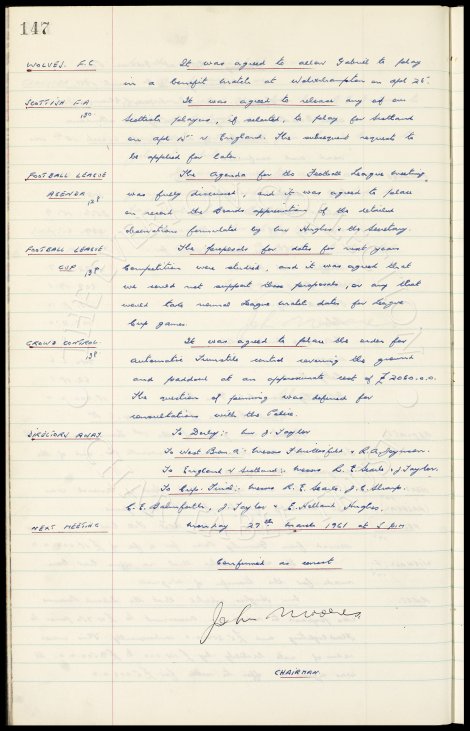 147
WOLVES. F.C. It was agreed to allow Gabriel to play
in a benefit match at Wolverhampton on Apl 25
SCOTTISH F.A. It was agreed to release any of our
130 Scottish players, if selected, to play for Scotland
on Apl v England. The subsequent request to
be applied for later.
FOOTBALL LEAGUE The Agenda for the Football League meeting
AGENDA was fully discussed, and it was agreed to place
on record the Boards appreciation of the detailed
observations formulated by Mr Hughes & the Secretary.
FOOTBALL LEAGUE The proposals for dates for next years
CUP 138 Competition were studied, and it was agreed that
we could not support these proposals, or any that
would take normal League match dates for League
Cup games.
CROWD CONTROL It was agreed to place the order for
138 automatic Turnstile control covering the ground
and paddock at an approximate cost of £2060.0.0.
The question of penning was deferred for
consultations with the Police.
DIRECTORS AWAY To Derby:- Mr. J. Taylor
To West Brom A:- Messrs & R.A.
To England v Scotland:- Messrs R. E. Searle, & J. Taylor.
To Cup Final:- Messrs R. E. Searle, J. C. Sharp,
C. E. Balmforth, J. Taylor & E. Holland Hughes.
NEXT MEETING Monday 27th March 1961 at 5 p.m
Confirmed as correct
John Moores
CHAIRMAN.